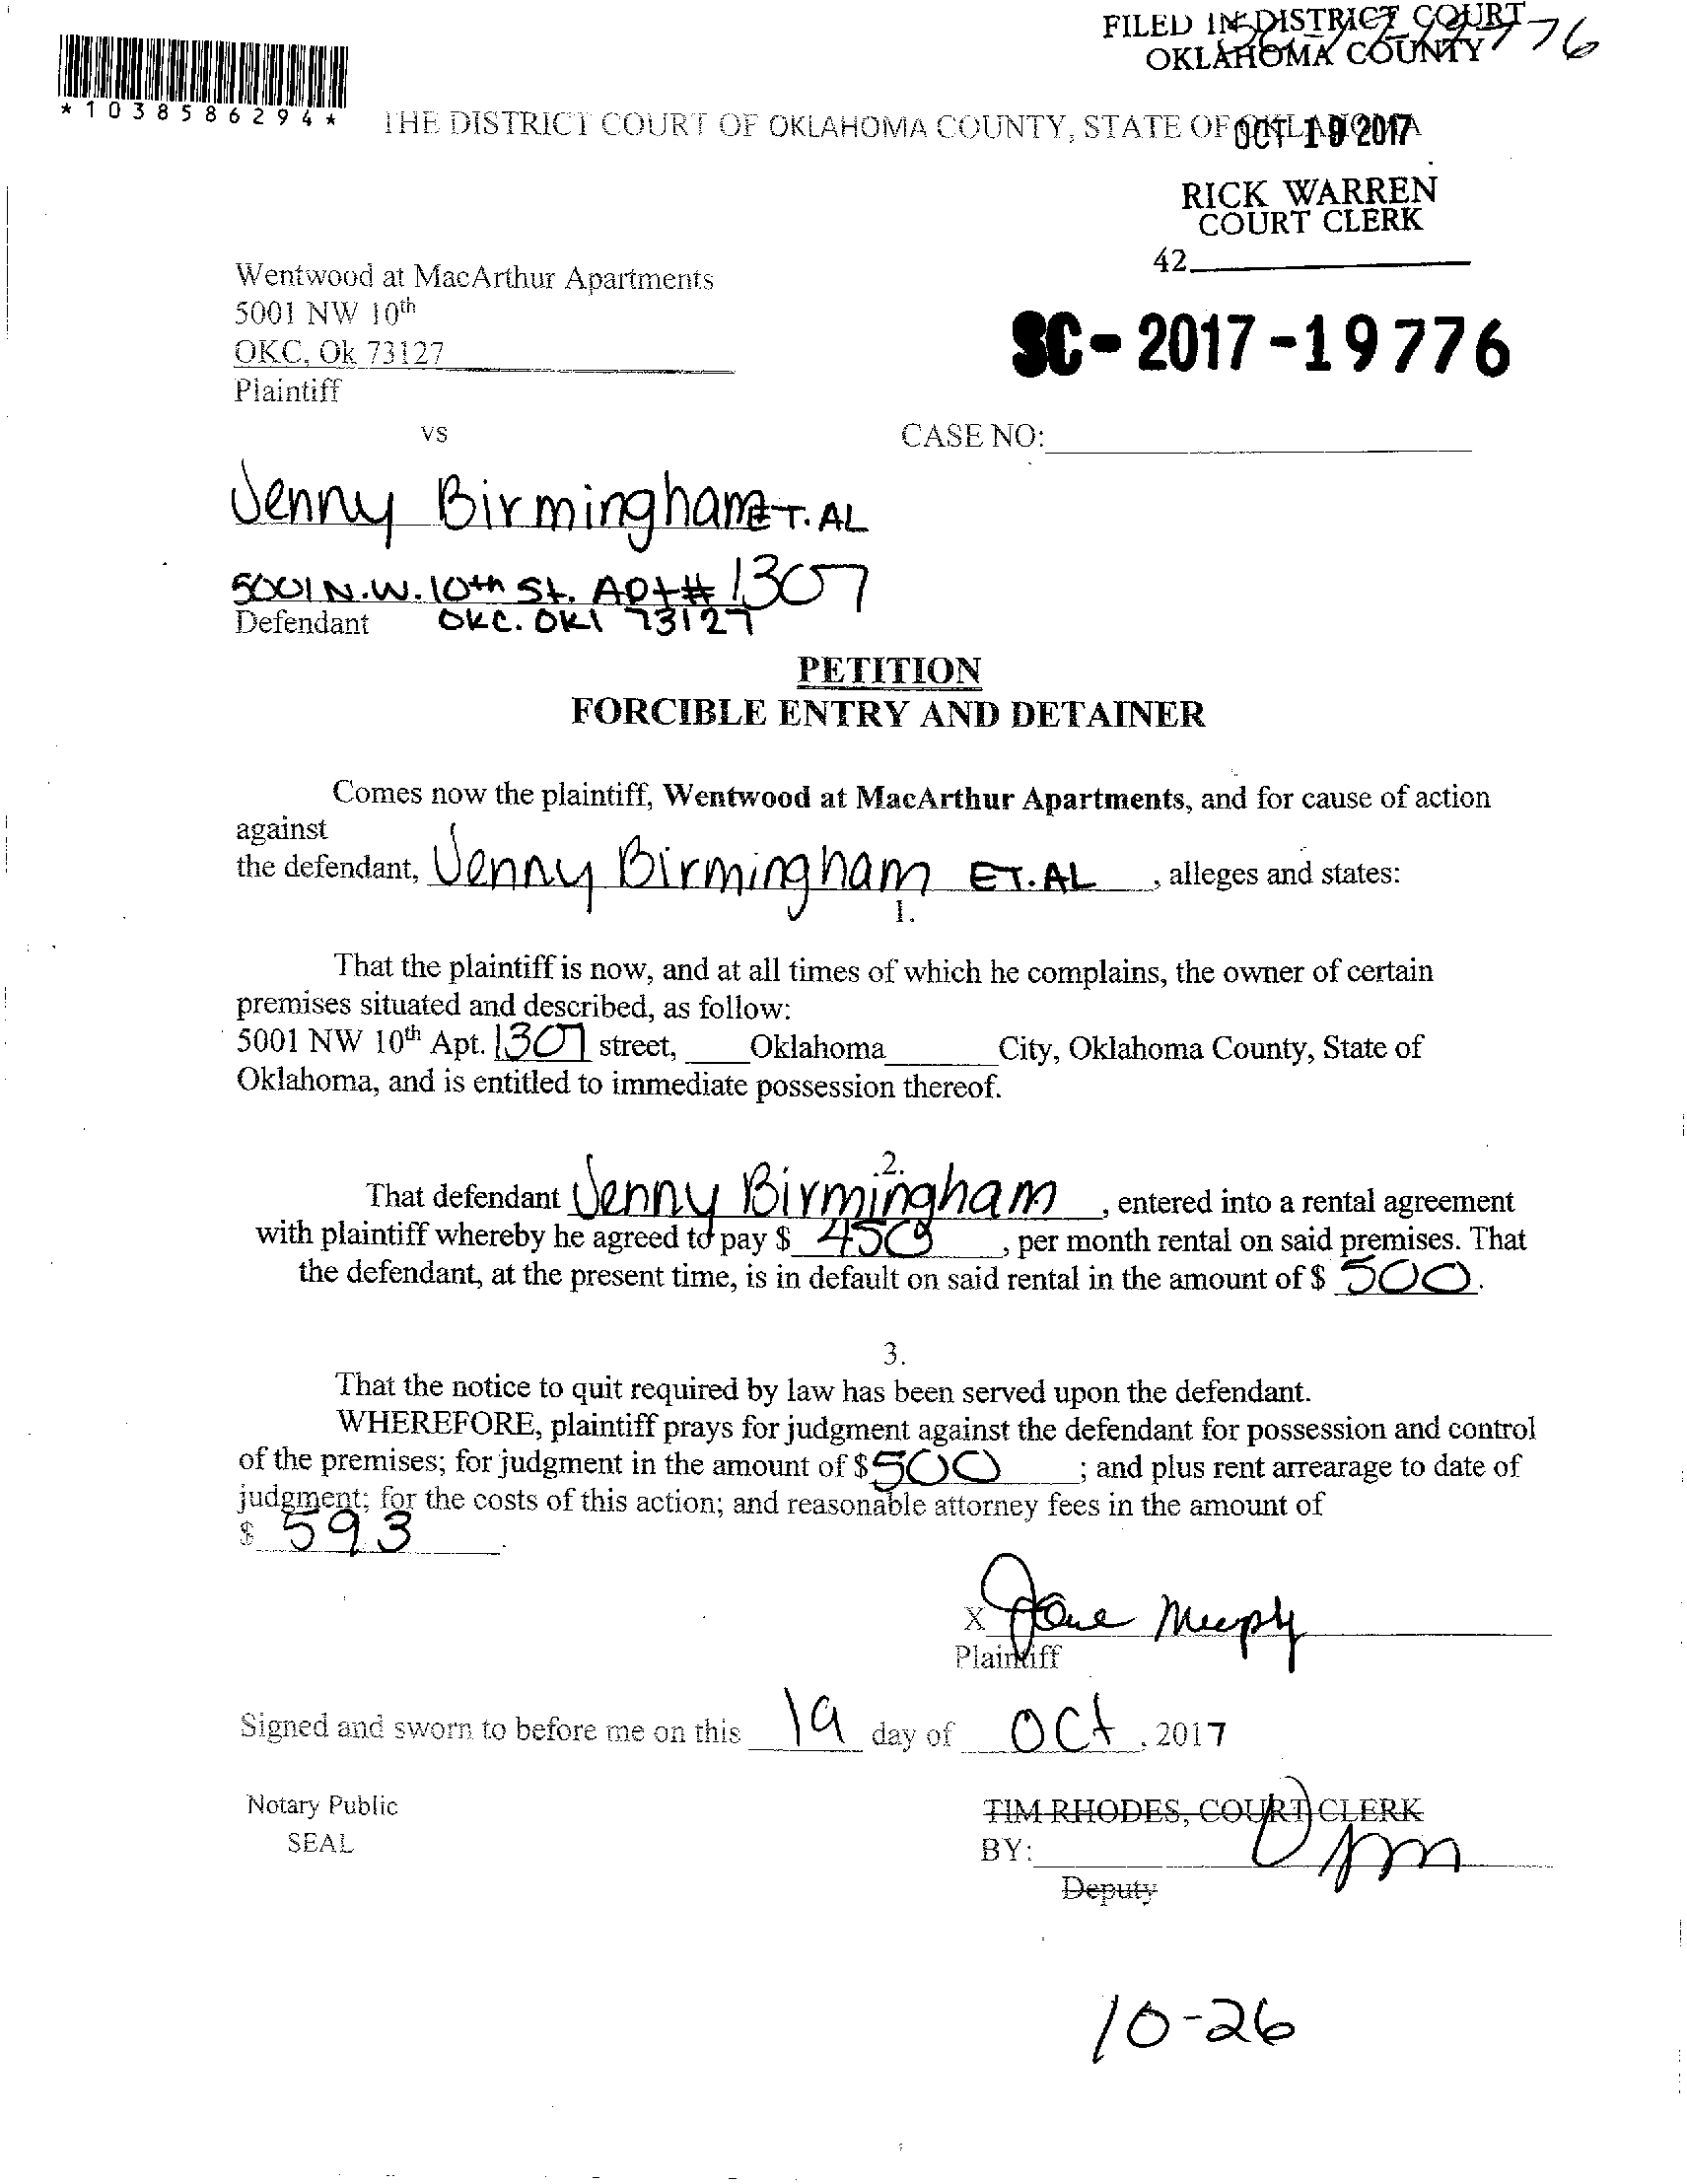 FILED IN DISTRICT COURT
OKLAHOMA COUNTY
*1038586294*
THE DISTRICT COURT OF OKLAHOMA COUNTY, STATE OF OKLAHOMA
OCT 19 2017
RICK WARREN
COURT CLERK
42
Wentwood at MacArthur Apartments
5001 NW 10th
OKC, Ok 73127
Plaintiff
SC-2017-19776
vs
CASE NO:
Jenny Birmingham ET. AL
5001 N.W. 10th St. APt# 1307
Defendant OKC. OKl 73127
PETITION
FORCIBLE ENTRY AND DETAINER
Comes now the plaintiff, Wentwood at MacArthur Apartments, and for cause of action
against
the defendant, Jenny Birmingham ET. AL, alleges and states:
1.
That the plaintiff is now, and at all times of which he complains, the owner of certain
premises situated and described, as follow:
5001 NW 10th Apt. 1307 street, Oklahoma City, Oklahoma County, State of
Oklahoma, and is entitled to immediate possession thereof.
.2.
That defendant Jenny Birmingham, entered into a rental agreement
with plaintiff whereby he agreed to pay $ 459, per month rental on said premises. That
the defendant, at the present time, is in default on said rental in the amount of $ 500.
3.
That the notice to quit required by law has been served upon the defendant.
WHEREFORE, plaintiff prays for judgment against the defendant for possession and control
of the premises; for judgment in the amount of $ 500; and plus rent arrearage to date of
judgment; for the costs of this action; and reasonable attorney fees in the amount of
$ 593
X Jane Murphy
Plaintiff
Signed and sworn to before me on this 19 day of Oct, 2017
Notary Public
SEAL
TIM RHODES, COURT CLERK
BY:
Deputy
10-26